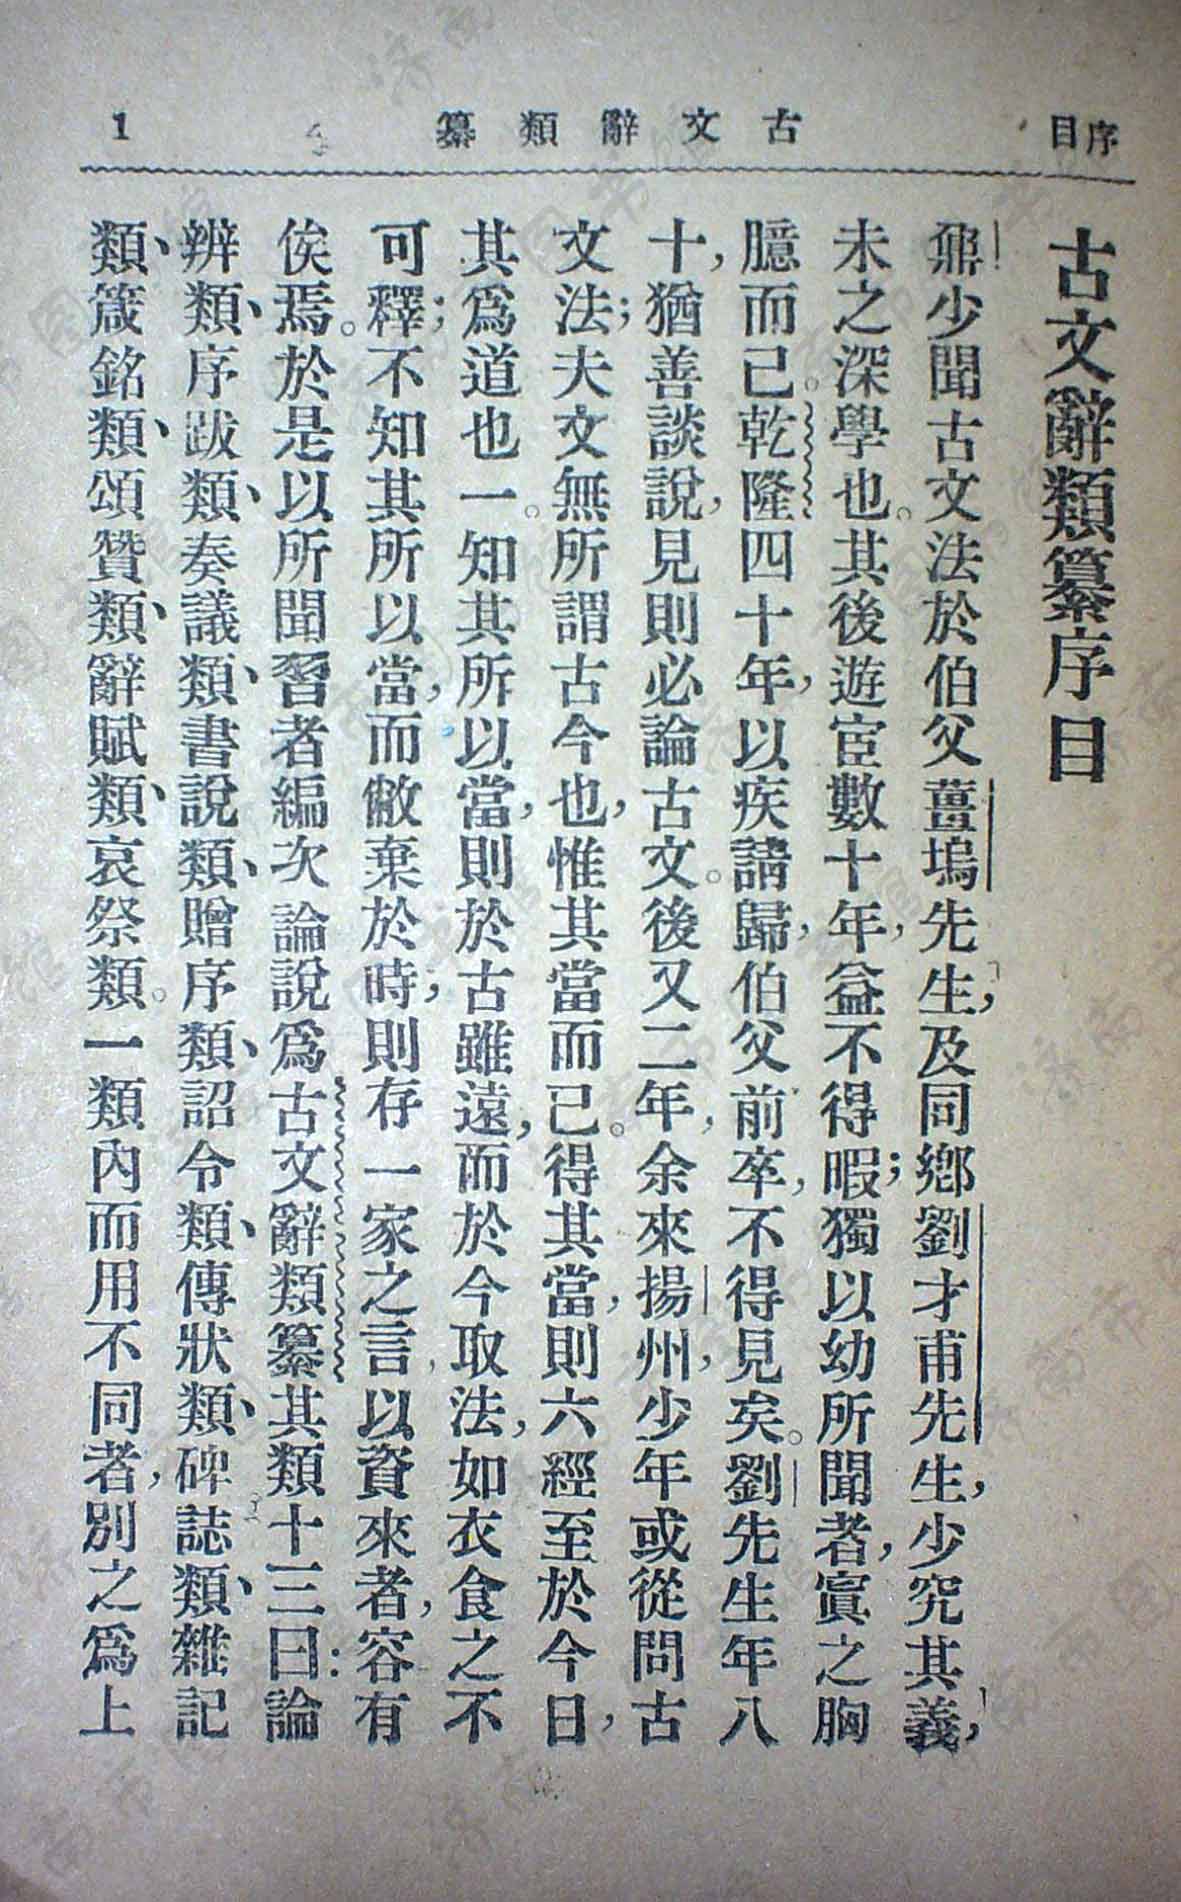 序目
古文辭類纂
1
古文辭類纂序目
鼐少聞古文法於伯父薑塢先生，及同鄉劉才甫先生，少究其義，
未之深學也。其後遊宦數十年，益不得暇；獨以幼所聞者，寘之胸
臆而己。乾隆四十年，以疾請歸，伯父前卒，不得見矣。劉先生年八
十，猶善談說，見則必論古文。後又二年，余來揚州，少年或從問古
文法；夫文無所謂古今也，惟其當而己。得其當，則六經至於今日，
其爲道也一。知其所以當，則於古雖遠，而於今取法，如衣食之不
可釋；不知其所以當，而敝棄於時；則存一家之言，以資來者，容有
俟焉。於是以所聞習者編次論說爲古文辭類纂其類十三曰：論
辨類、序跋類、奏議類、書說類、贈序類、詔令類、傳狀類、碑誌類、雜記
類、箴銘類、頌贊類、辭賦類、哀祭類。一類內而用不同者，別之爲上